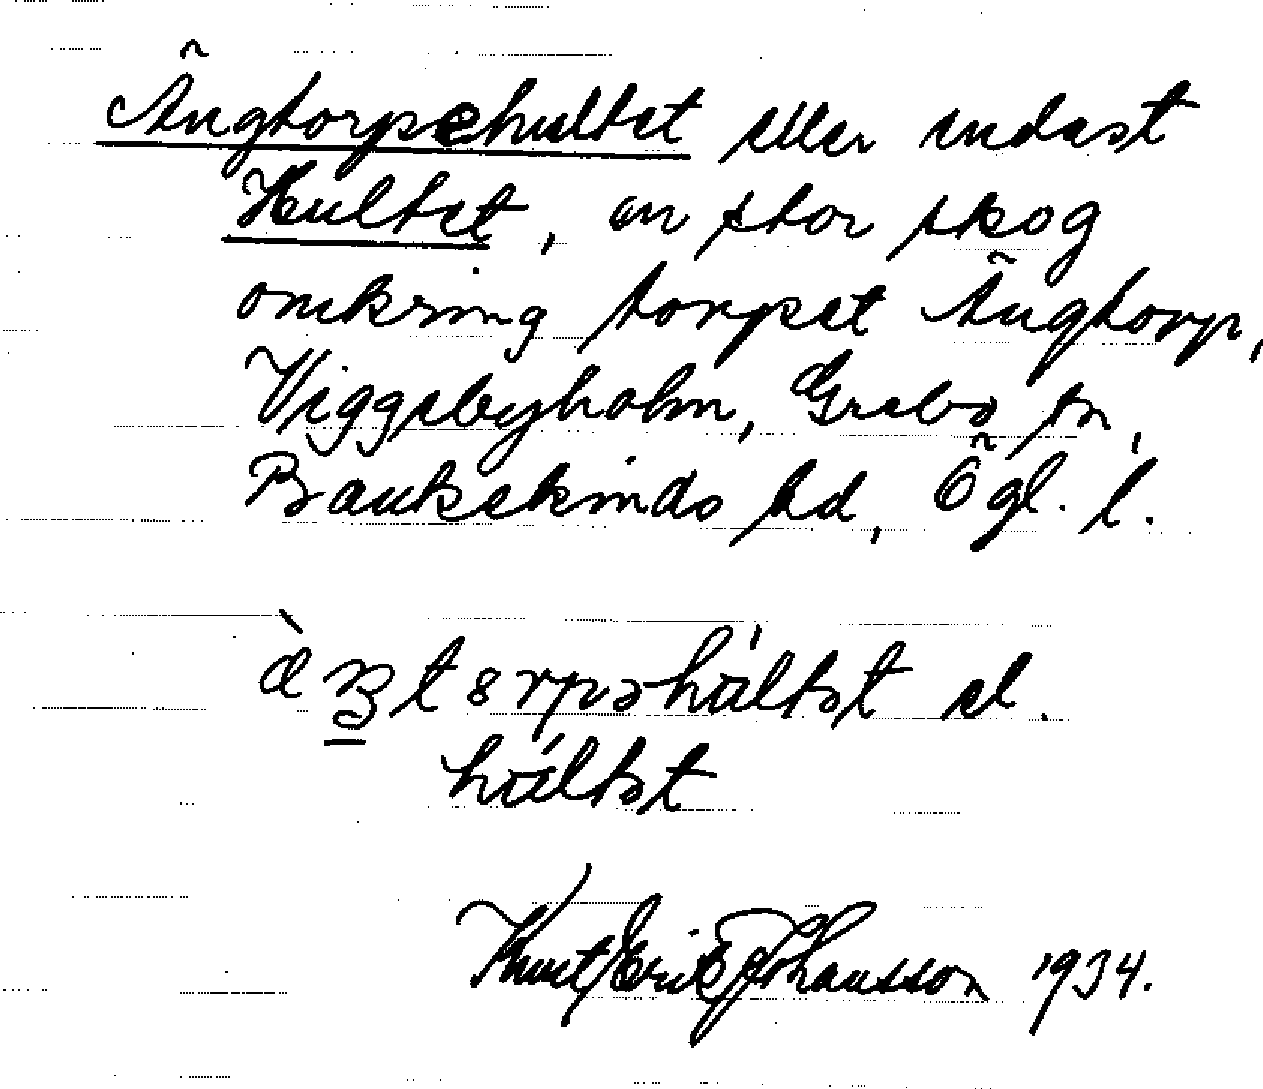 Ängtorpehultet eller endast
Hultet, en stor skog
omkring torpet Ängtorp,
Viggebyholm, Grebo sn,
Bankekinds hd, Ögl. l.
el.
Knut Erik Johansson 1934.